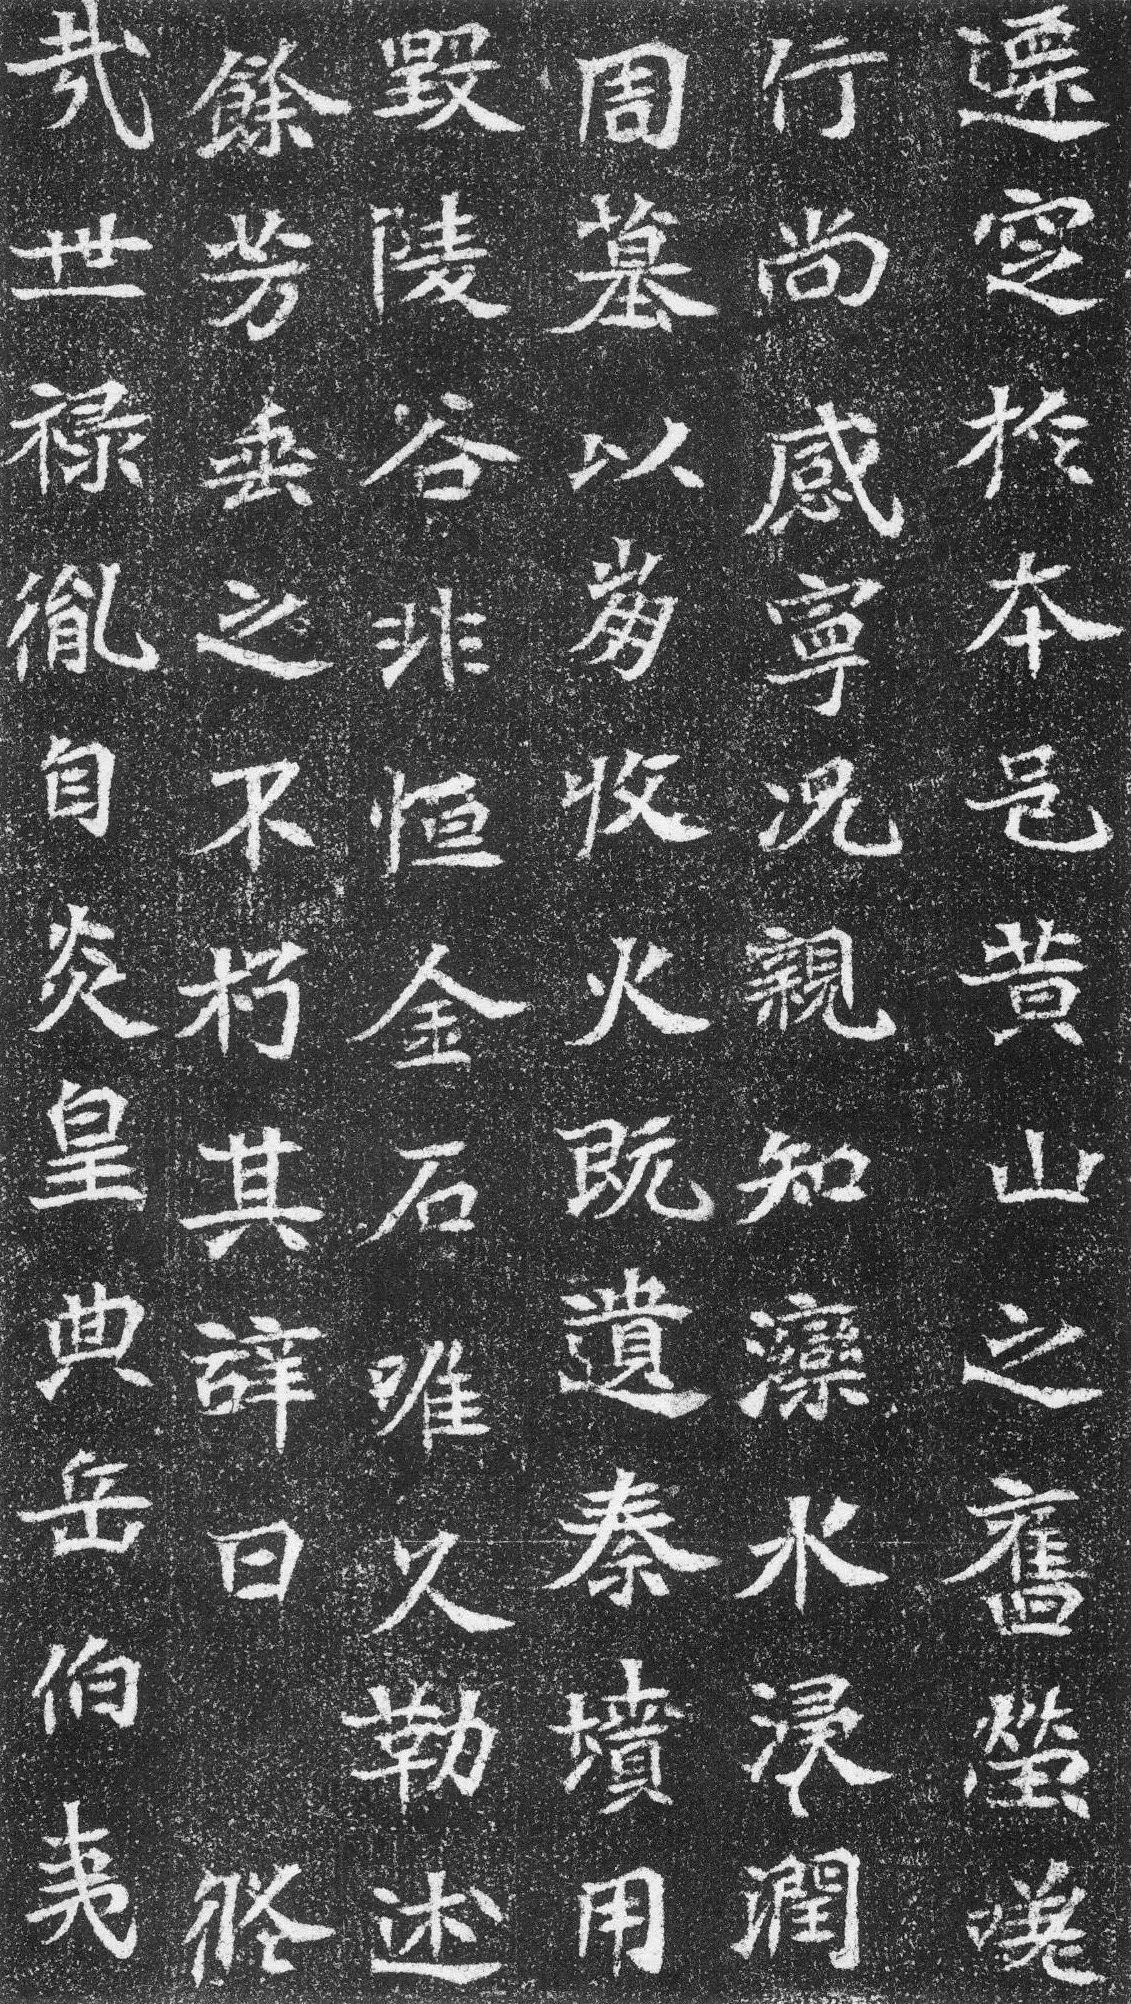 遷窆於本邑黄山之舊塋
行尚感寧況親知灤水浸潤
周墓以崩牧火既遺秦墳用
毀陵谷非恒金石唯久勒述
餘芳垂之不朽其辝曰　悠
哉世禄胤自炎皇典岳伯夷